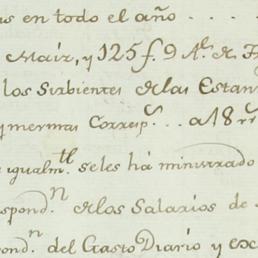 en todo el año . . . .
Maíz, y 125 f. 9 Al. de
los Sirbientes de las Estan
y mermas Corresp.s . . . a 18 rr
igualm.te se les há ministrado
pond.n de los Salarios de
pond.n del Gasto Diario y exc